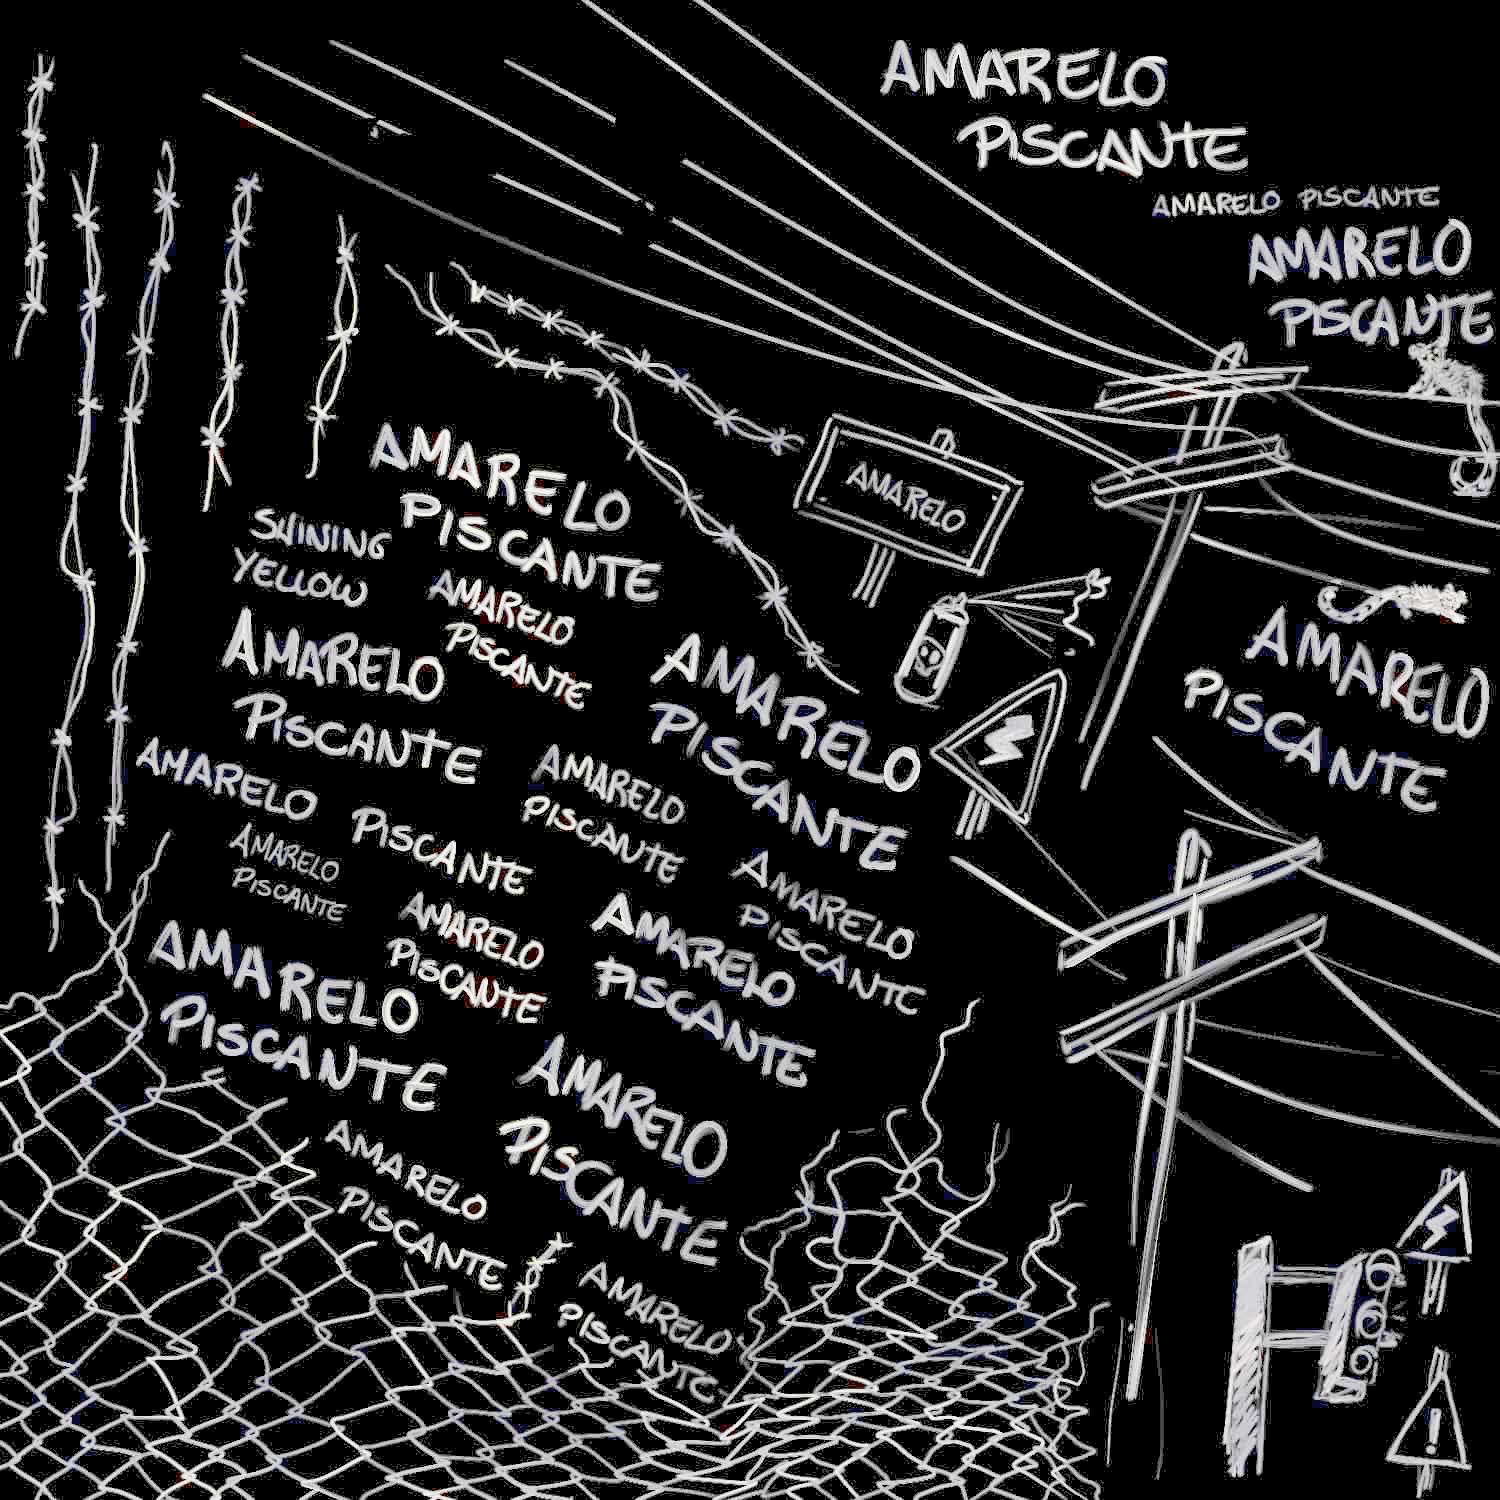 AMARELO
PISCANTE
AMARELO PISCANTE
AMARELO
PISCANTE
AMARELO
AMARELO
PISCANTE
SHINING
YELLOW
AMARELO
PISCANTE
AMARELO
PISCANTE
AMARELO
PISCANTE
AMARELO
PISCANTE
AMARELO PISCANTE
AMARELO
PISCANTE
AMARELO
PISCANTE
AMARELO
PISCANTE
AMARELO
PISCANTE
AMARELO
PISCANTE
AMARELO
PISCANTE
AMARELO
PISCANTE
AMARELO
PISCANTE
AMARELO
PISCANTE
AMARELO
PISCANTE
!